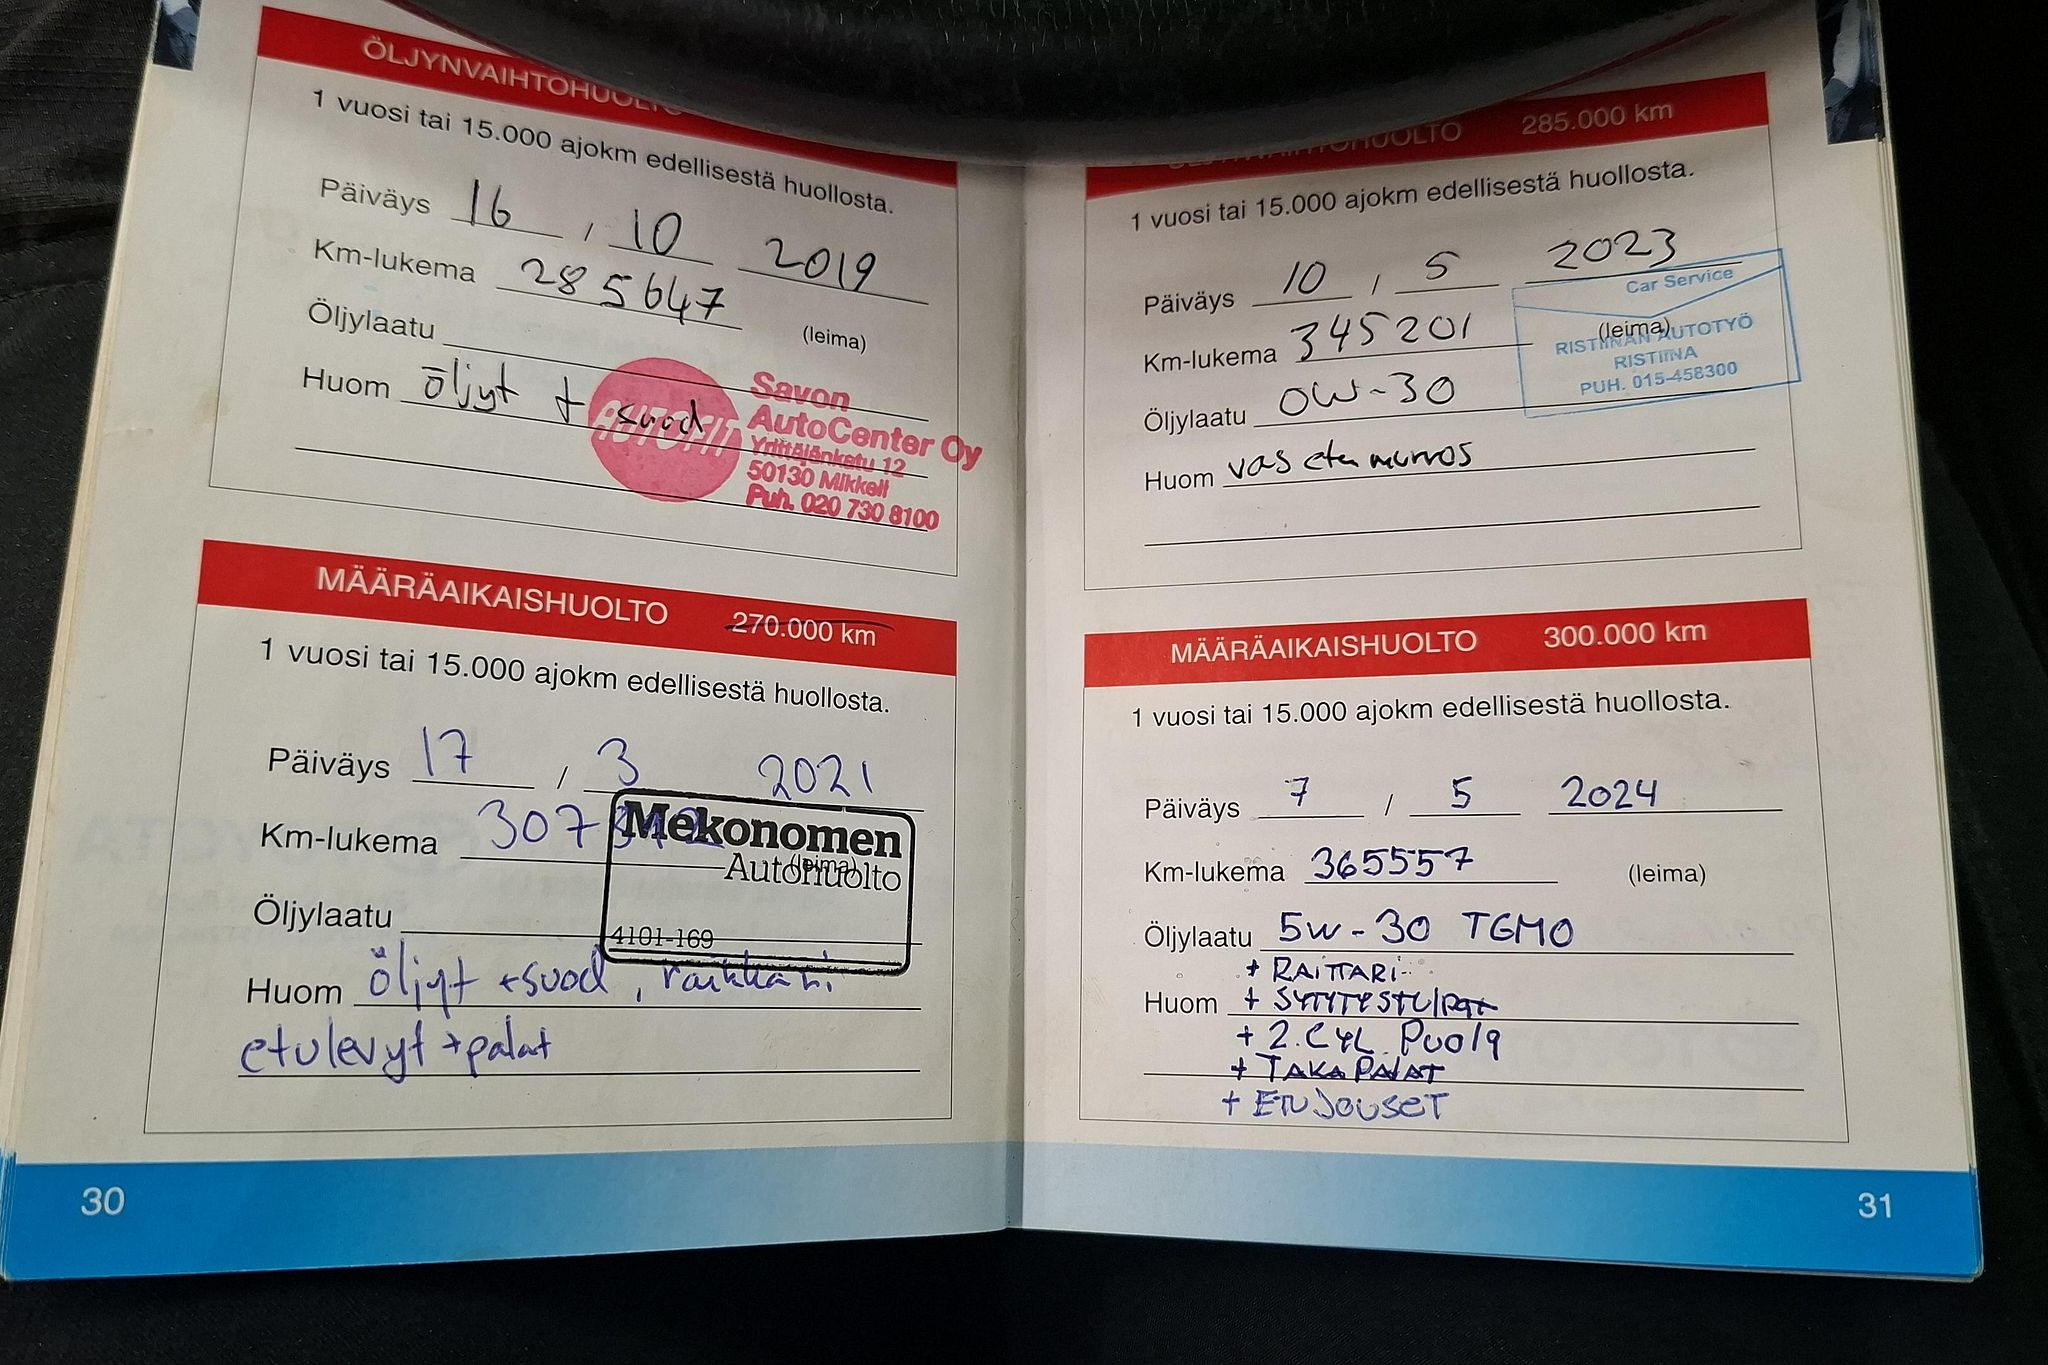 ÖLJYNVAIHTOHUOLTO
1 vuosi tai 15.000 ajokm edellisestä huollosta.
Päiväys 16 / 10 2019
Km-lukema 285647
(leima)
Öljylaatu
Huom öljyt + suod
AUTOFIT
Savon
AutoCenter Oy
Yrittäjänkatu 12
50130 Mikkeli
Puh. 020 730 8100
MÄÄRÄAIKAISHUOLTO 270.000 km
1 vuosi tai 15.000 ajokm edellisestä huollosta.
Päiväys 17 / 3 2021
Km-lukema 307342
Mekonomen
Autohuolto
(leima)
4101-169
Öljylaatu
Huom öljyt + suod, raikkari
etulevyt + palat
30
ÖLJYNVAIHTOHUOLTO 285.000 km
1 vuosi tai 15.000 ajokm edellisestä huollosta.
Päiväys 10 / 5 2023
Km-lukema 345201
(leima)
Car Service
RISTIINAN AUTOTYÖ
RISTIINA
PUH. 015-458300
Öljylaatu 0W-30
Huom vas etu murros
MÄÄRÄAIKAISHUOLTO 300.000 km
1 vuosi tai 15.000 ajokm edellisestä huollosta.
Päiväys 7 / 5 2024
Km-lukema 365557 (leima)
Öljylaatu 5W-30 TGMO
+ RAITTARI
Huom + SYTYTYSTULPAT
+ 2. CYL. PUOLA
+ TAKA PALAT
+ ETUJOUSET
31